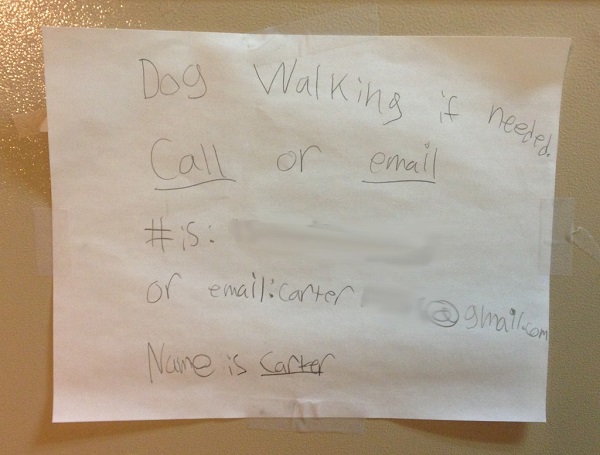 Dog Walking if needed.
Call or email
#is:
or email:carter @gmail.com
Name is Carter